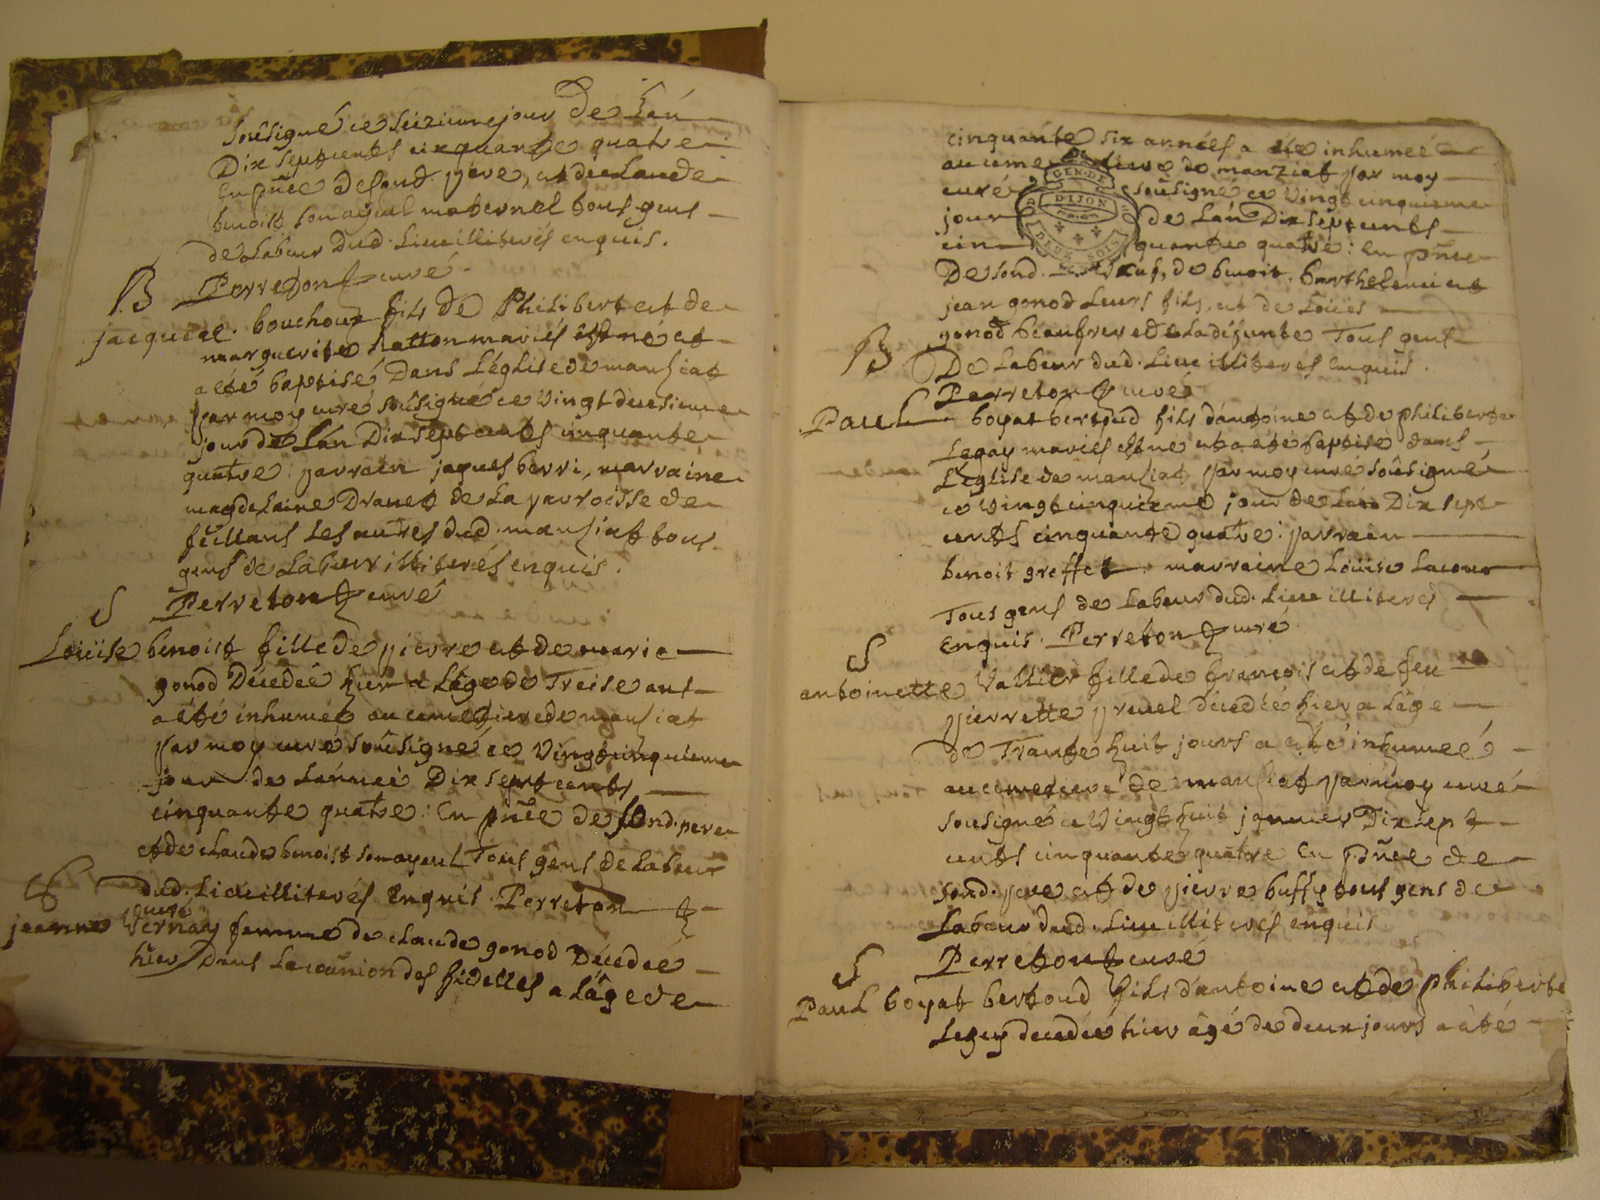 sousigné ce seizieme jour de Lan
Dix septcents cinquante quatre
En pñce de sond. pere, et de Claude
benoist son ayeul maternel tous gens
de Labeur dud. Lieu illiterés enquis.
Perreton curé
B
jacquice. bouchoux fils de Philibert et de
marguerite Natton mariés est né et
a été baptisé Dans L'église de mansiat
par moy curé sousigné ce vingt deusieme
jour de Lan Dix sept cents cinquante
quatre: parrain jaques berri, marraine
magdelaine Dranet de La parroisse de
feillans Les autres dud. mansiat tous
gens de Labeur illiterés enquis.
Perreton curé
S
Loüise benoist fille de pierre et de marie
gonod Décedeé hier a Lâge de Treise ans
a été inhumeé au cemetiere de mansiat
par moy curé sousigné ce vingtcinquieme
jour de Lanneé Dix sept cents
cinquante quatre: En pñce de sond. pere
et de claude benoist son ayeul Tous gens de Labeur
dud. Lieu illiterés Enquis. Perreton
curé
S
jeanne Vernay femme de claude gonod Décedeé
hier Dans La coünion des fidelles a Lâge de
cinquante six années a été inhumeé
au cimetiere de manziat par moy
curé sousigné ce vingt cinquieme
GEN. DE
DIJON
DEUX SOLS
jour de Lan Dix sept cents
cinquante quatre: En pñce
De sond. de benoit, barthelemi et
jean gonod Leurs fils, et de Loüis
gonod béaufrere de La défunte Tous gens
De Labeur dud. Lieu illiterés Enquis.
Perreton curé
B
Paul boyat bertoud fils d'antoine et de philiberte
Legay mariés est né et a été baptisé dans
L'église de mansiat par moy curé sousigné
ce vingt cinquieme jour de Lan Dix sept
cents cinquante quatre: parrain
benoit greffet marraine Loüise Lacour
Tous gens de Labeur dud. Lieu illiterés
Enquis. Perreton curé
S
antoinette Vallier fille de françois et de feu
pierrette pruel décedeé hier a Lâge
de Trante huit jours a été inhumeé
au cemetiere de mansiat par moy curé
sousigné ce vingt huit janvier Dix sept
cents cinquante quatre En pñce de
sond. pere et de pierre buffy tous gens de
Labeur dud. Lieu illiterés enquis
Perreton curé
S
Paul boyat bertoud fils d'antoine et de philiberte
Legey decedé hier âgé de deux jours a été